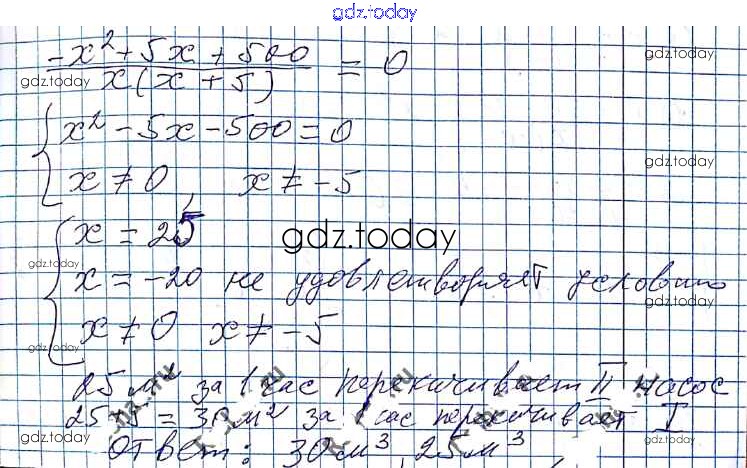 gdz.today
-x² + 5x + 500 / x(x + 5) = 0
gdz.today gdz.today
{ x² - 5x - 500 = 0
x ≠ 0, x ≠ -5
gdz.today
{ x = 25
gdz.today
x = -20 не удовлетворяет условию
gdz.today gdz.today
x ≠ 0 x ≠ -5
gdz.today
25 м² за 1 час перекачивает II насос
25+5 = 30 м² за 1 час перекачивает I
gdz.today gdz.today
Ответ: 30 м³, 25 м³